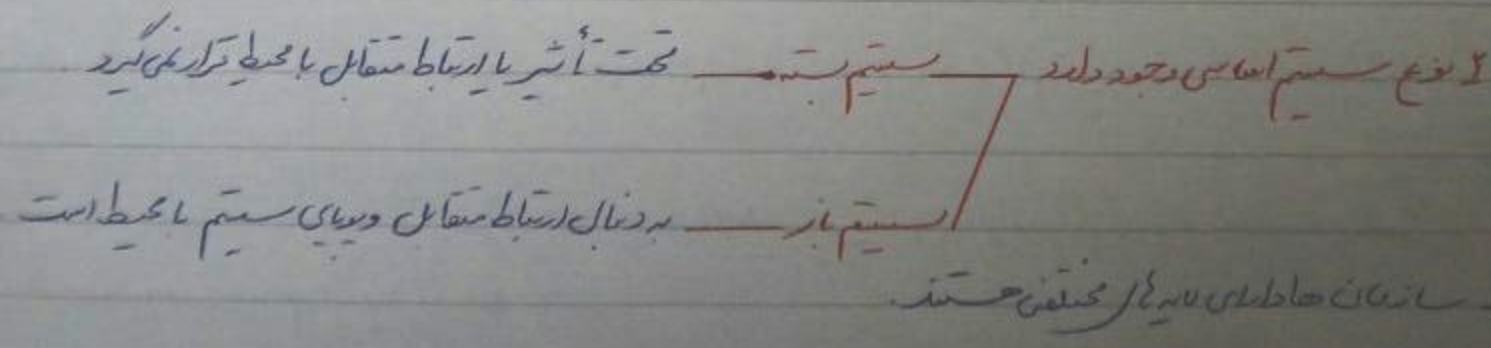 ۲ نوع سیستم اساسی وجود دارد سیستم بسته تحت تأثیر یا ارتباط متقابل با محیط قرار نمی گیرد
سیستم باز به دنبال ارتباط متقابل و پویای سیستم با محیط است
سازمان ها دارای لایه های مختلفی هستند.